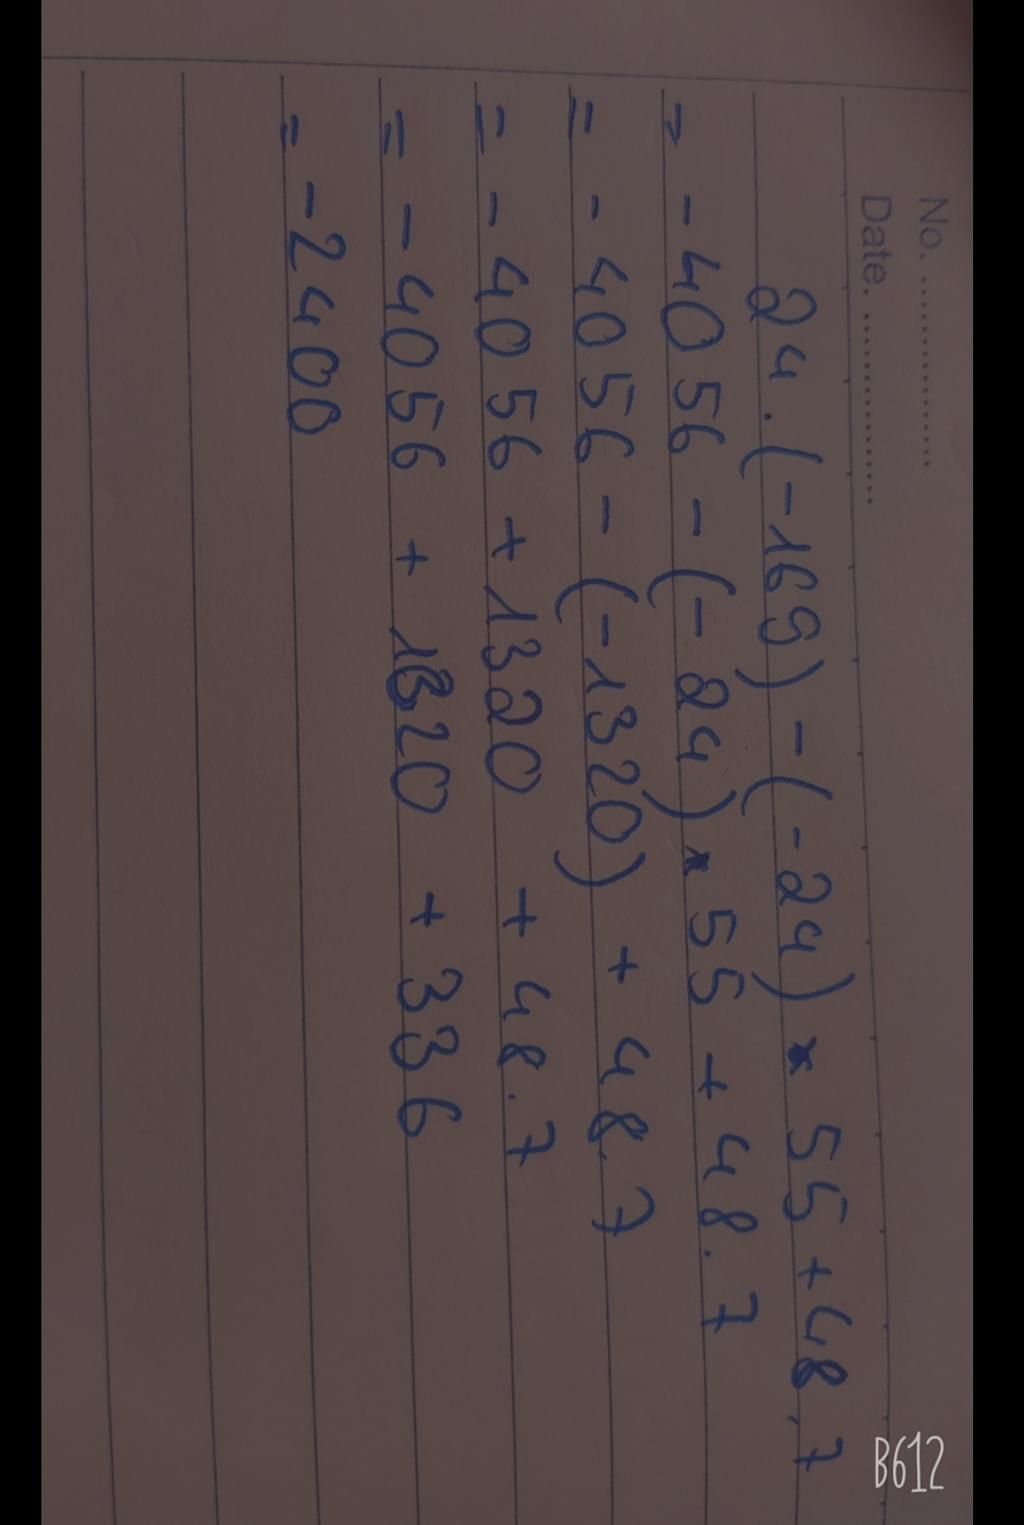 No. ................
Date. ................
24.(-169)-(-24)×55+48.7
= -4056-(-24)×55+48.7
= -4056-(-1320)+48.7
= -4056+1320+48.7
= -4056+1320+336
= -2400
B612